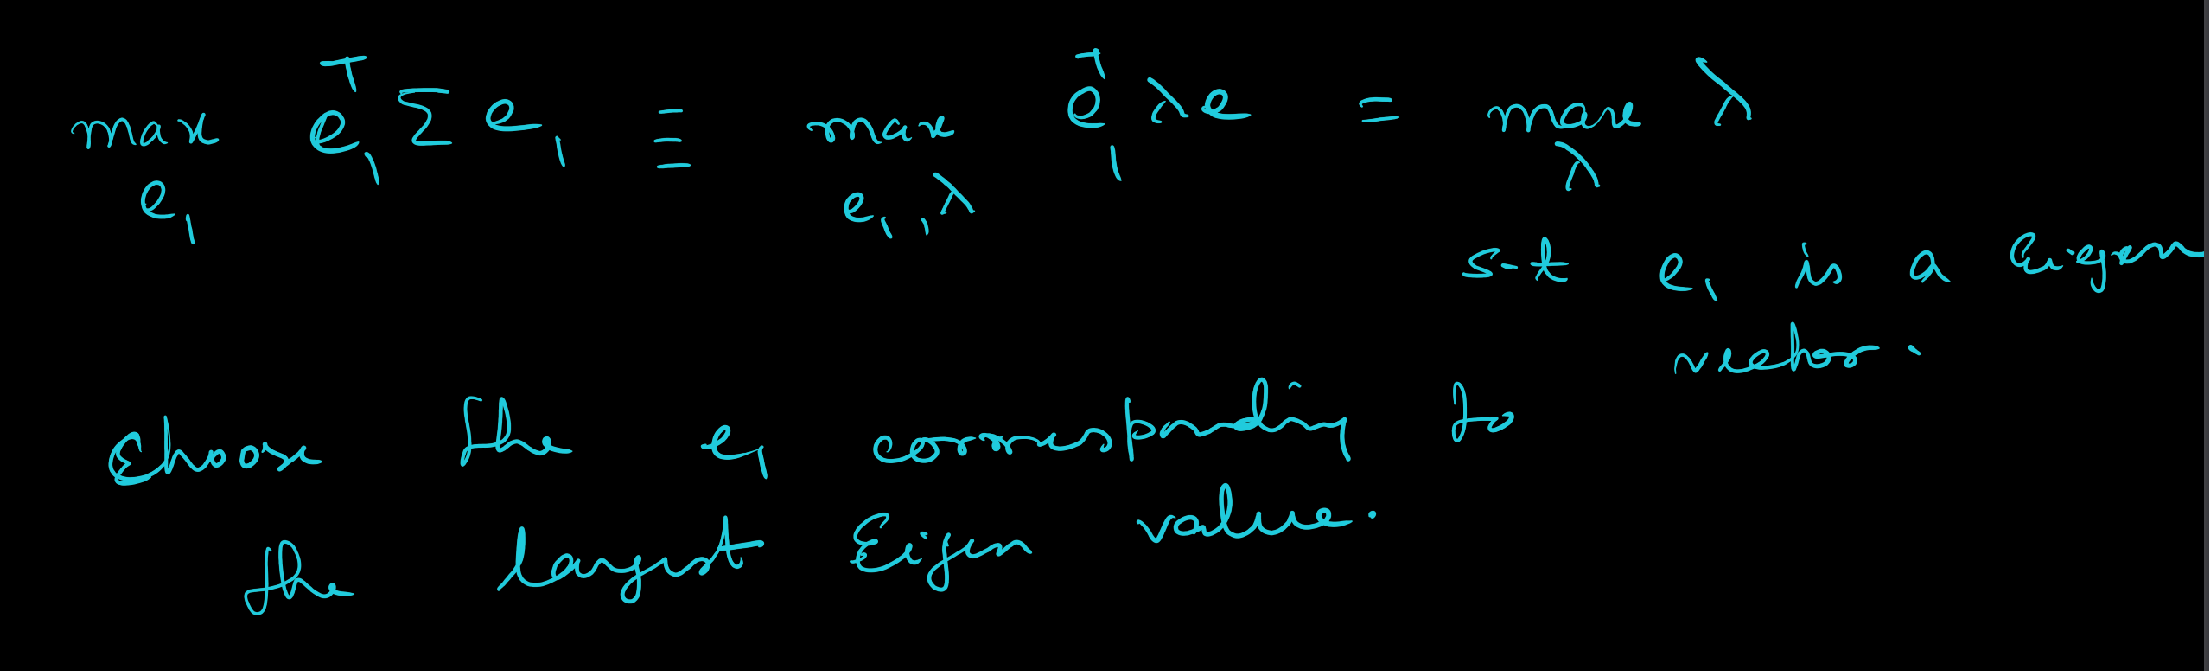 max e₁ᵀ Σ e₁ ≡ max e₁ᵀ λ e = max λ
e₁ e₁, λ λ
s-t e₁ is a Eigen
vector.
Choose the e₁ corresponding to
the largest Eigen value.